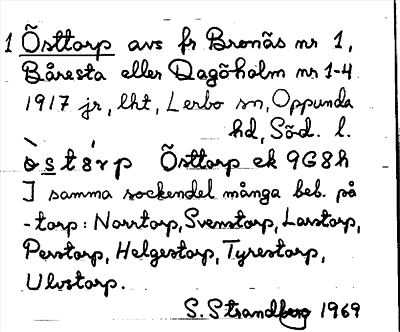 1 Östtorp avs fr Bronäs nr 1,
Båresta eller Dagöholm nr 1-4
1917 jr, lht, Lerbo sn, Oppunda
hd, Söd. l.
òstórp Östtorp ek 9G8h
I samma sockendel många beb. på
-torp: Norrtorp, Svenstorp, Larstorp,
Perstorp, Helgestorp, Tyrestorp,
Ulvstorp.
S. Strandberg 1969